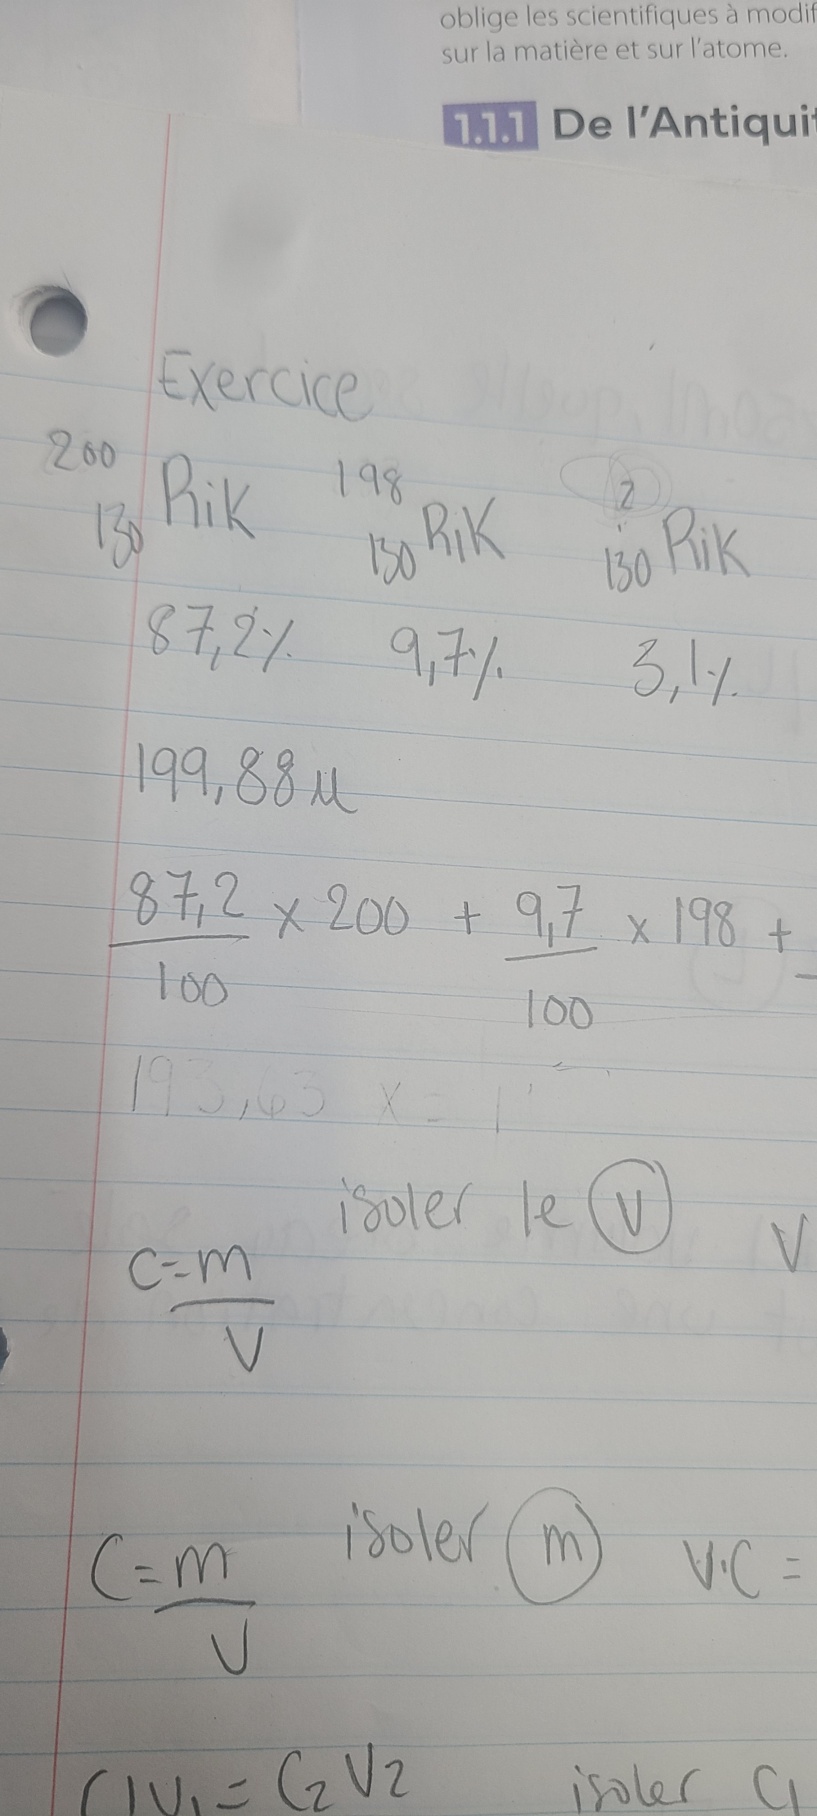 oblige les scientifiques à modif
sur la matière et sur l'atome.
1.1.1 De l'Antiquit
Exercice
200 130 Rik 198 130 Rik ? 130 Rik
87,2% 9,7% 3,1%
199,88 u
87,2/100 x 200 + 9,7/100 x 198 +
193,63 x = 1
isoler le V V
C = m/V
C = m/V isoler m V·C =
C1V1 = C2V2 isoler C1